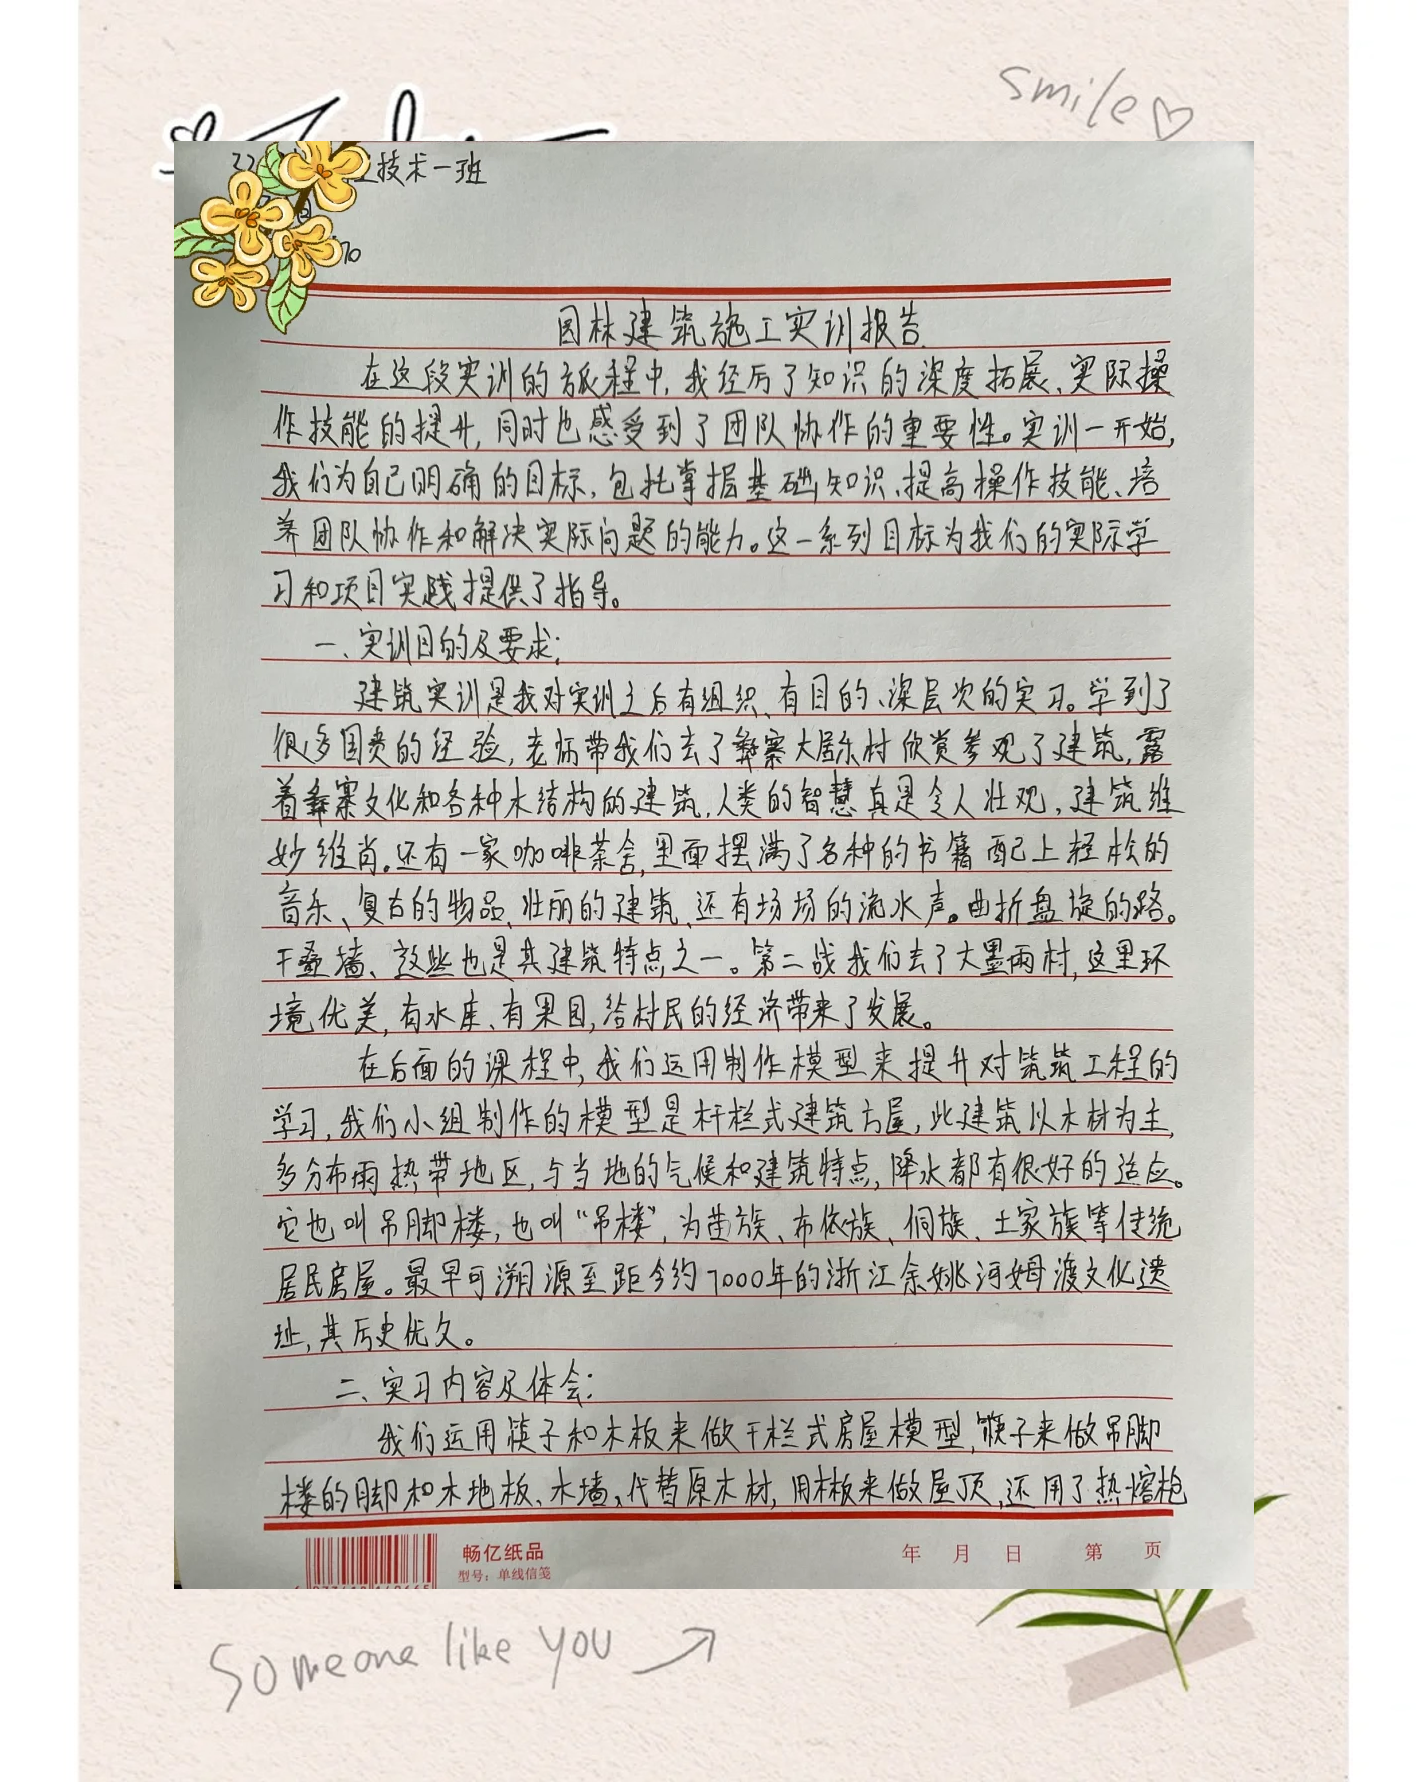 smile
技术一班
园林建筑施工实训报告
在这段实训的旅程中,我经历了知识的深度拓展、实际操
作技能的提升,同时也感受到了团队协作的重要性。实训一开始,
我们为自己明确的目标,包括掌握基础知识、提高操作技能、培
养团队协作和解决实际问题的能力。这一系列目标为我们的实际学
习和项目实践提供了指导。
一、实训目的及要求:
建筑实训是我对实训之后有组织、有目的、深层次的实习。学到了
很多国类的经验,老师带我们去了彝寨大居乐村欣赏参观了建筑,露
着彝寨文化和各种木结构的建筑,人类的智慧真是令人壮观,建筑维
妙维肖。还有一家咖啡茶舍,里面摆满了各种的书籍配上轻松的
音乐、复古的物品、壮丽的建筑、还有场场的流水声。曲折盘旋的路。
干叠墙、这些也是其建筑特点之一。第二战我们去了大墨雨村,这里环
境优美,有水库、有果园,给村民的经济带来了发展。
在后面的课程中,我们运用制作模型来提升对筑筑工程的
学习,我们小组制作的模型是杆栏式建筑方屋,此建筑以木材为主,
多分布雨热带地区,与当地的气候和建筑特点,降水都有很好的适应。
它也叫吊脚楼,也叫“吊楼”,为苗族、布依族、侗族、土家族等传统
居民房屋。最早可溯源至距今约7000年的浙江余姚河姆渡文化遗
址,其历史优久。
二、实习内容及体会:
我们运用筷子和木板来做干栏式房屋模型,筷子来做吊脚
楼的脚和木地板、木墙,代替原木材,用木板来做屋顶,还用了热熔枪
畅亿纸品
型号:单线信笺
年 月 日 第 页
Someone like you